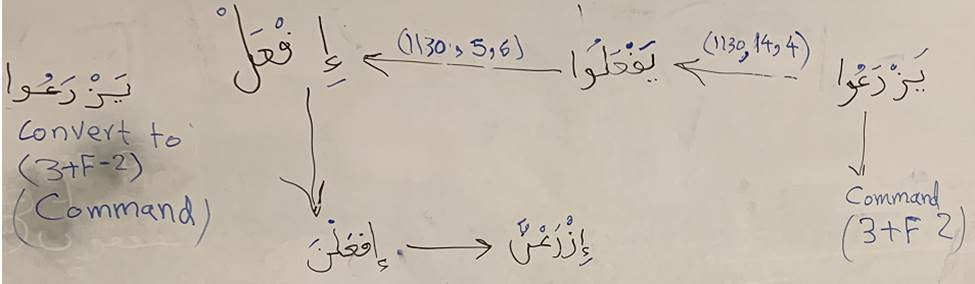 يَزْرَعُوا
(1130,14,4)
يَفْعَلُوا
(1130, 5, 6)
إِفْعَلْ
إِفعَلْنَ
إِزْرَعْنَ
Command
(3+F 2)
يَزْرَعُوا
Convert to
(3+F-2)
(Command)